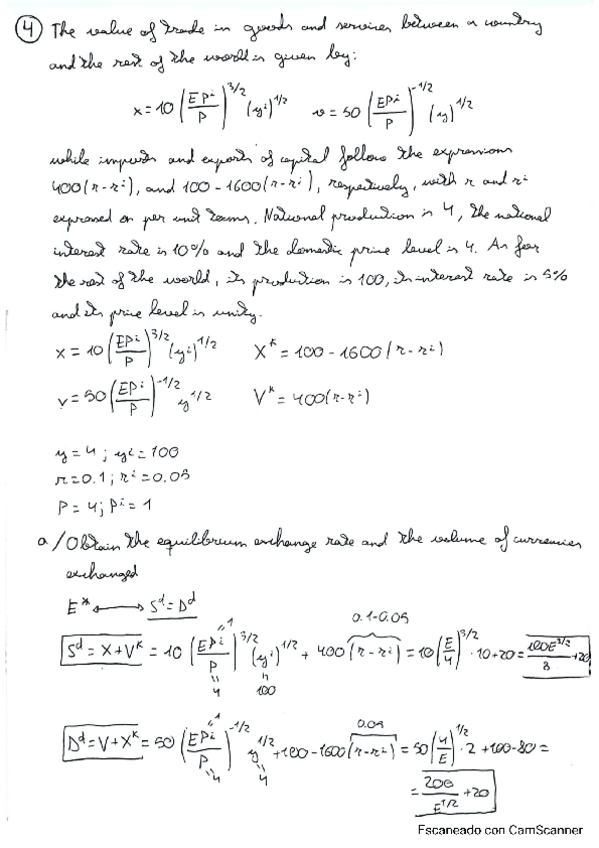 ④ The value of trade in goods and services between a country
and the rest of the world is given by:
x = 10 (EPⁱ/P)^3/2 (yⁱ)^1/2 v = 50 (EPⁱ/P)^-1/2 (y)^1/2
while imports and exports of capital follow the expressions
400(r-rⁱ), and 100-1600(r-rⁱ), respectively, with r and rⁱ
expressed on per unit terms. National production is 4, the national
interest rate is 10% and the domestic price level is 4. As for
the rest of the world, its production is 100, its interest rate is 5%
and its price level is unity.
x = 10 (EPⁱ/P)^3/2 (yⁱ)^1/2 X^k = 100-1600(r-rⁱ)
v = 50 (EPⁱ/P)^-1/2 y^1/2 V^k = 400(r-rⁱ)
y = 4; yⁱ = 100
r = 0.1; rⁱ = 0.05
P = 4; Pⁱ = 1
a/ Obtain the equilibrium exchange rate and the volume of currencies
exchanged
E* ↔ S^d = D^d
0.1-0.05
S^d = X+V^k = 10 (EPⁱ/P)^3/2 (yⁱ)^1/2 + 400(r-rⁱ) = 10(E/4)^3/2 · 10+20 = 100E^3/2/8 +20
=1 =4 =100
0.05
D^d = V+X^k = 50 (EPⁱ/P)^-1/2 y^1/2 +100-1600(r-rⁱ) = 50(4/E)^1/2 · 2 +100-80 =
=1 =4 =4
= 200/E^1/2 +20
Escaneado con CamScanner